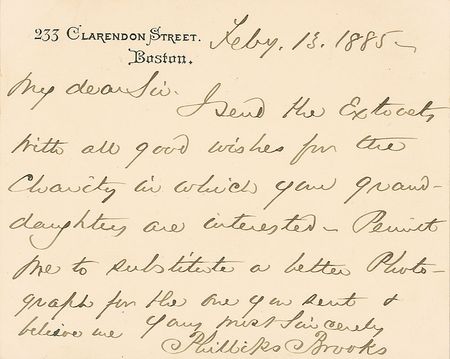 233 CLARENDON STREET.
Boston.
Feby. 13. 1885 –
My dear Sir.
I send the Extracts
with all good wishes for the
Charity in which your grand-
daughters are interested – Permit
me to substitute a better Photo-
graph for the one you sent &
believe me Yours most Sincerely
Phillips Brooks